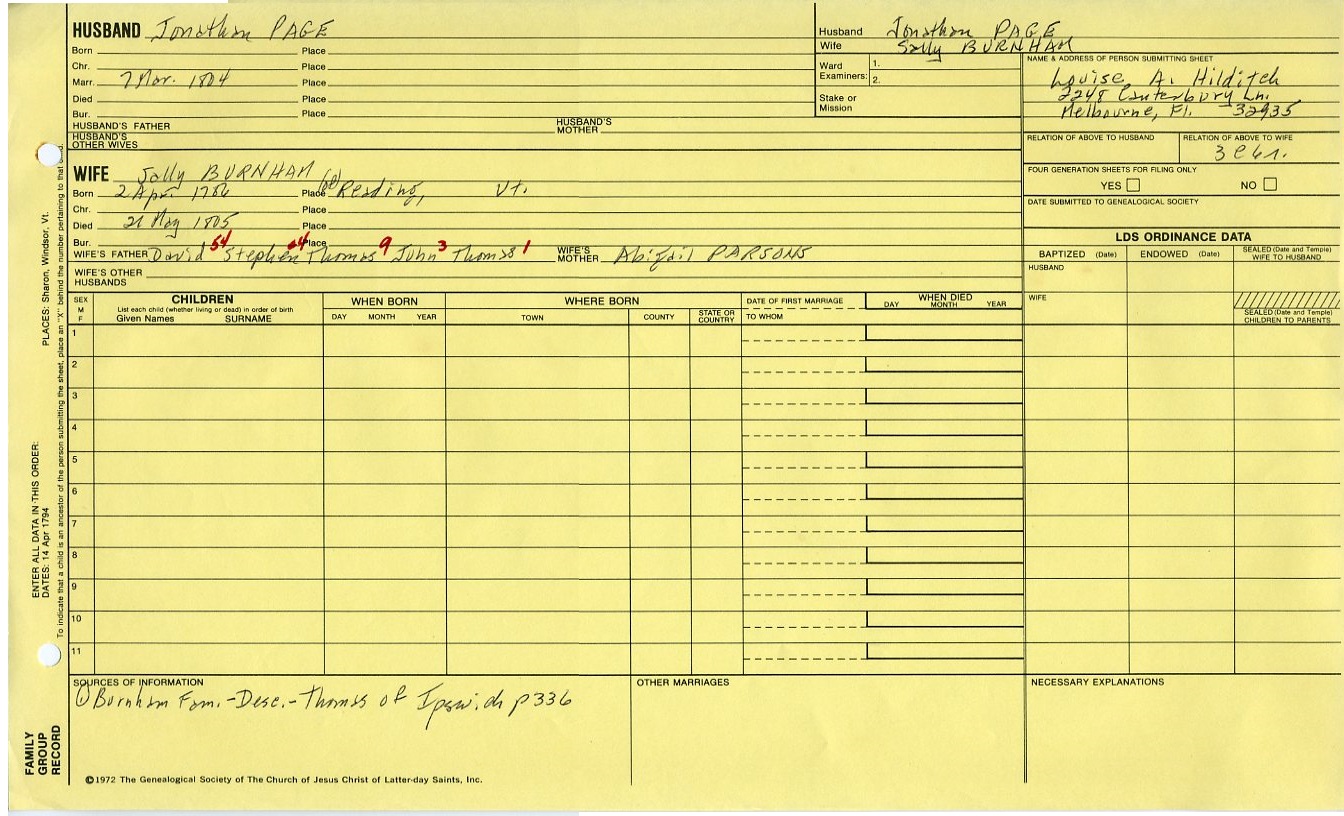 HUSBAND Jonathan PAGE
Born Place
Chr. Place
Marr. 7 Mar. 1804 Place
Died Place
Bur. Place
HUSBAND'S FATHER HUSBAND'S MOTHER
HUSBAND'S OTHER WIVES
Husband Jonathan PAGE
Wife Sally BURNHAM
Ward Examiners: 1. 2.
Stake or Mission
NAME & ADDRESS OF PERSON SUBMITTING SHEET
Louise A. Hilditch
2248 Canterbury Ln.
Melbourne, Fl. 32935
RELATION OF ABOVE TO HUSBAND RELATION OF ABOVE TO WIFE
FOUR GENERATION SHEETS FOR FILING ONLY
YES NO
DATE SUBMITTED TO GENEALOGICAL SOCIETY
WIFE Sally BURNHAM
Born 2 Apr. 1786 Place Reading, Vt.
Chr. Place
Died 21 May 1805 Place
Bur. Place
WIFE'S FATHER David 54 Stephen Thomas 9 John 3 Thomas 1 WIFE'S MOTHER Abigail PARSONS
WIFE'S OTHER HUSBANDS
LDS ORDINANCE DATA
BAPTIZED (Date) ENDOWED (Date) SEALED (Date and Temple) WIFE TO HUSBAND
HUSBAND
WIFE
SEALED (Date and Temple) CHILDREN TO PARENTS
SEX M F
CHILDREN
List each child (whether living or dead) in order of birth
Given Names SURNAME
WHEN BORN
DAY MONTH YEAR
WHERE BORN
TOWN COUNTY STATE OR COUNTRY
DATE OF FIRST MARRIAGE
TO WHOM
WHEN DIED
DAY MONTH YEAR
1
2
3
4
5
6
7
8
9
10
11
SOURCES OF INFORMATION
① Burnham Fam.-Desc.-Thomas of Ipswich p336
OTHER MARRIAGES
NECESSARY EXPLANATIONS
©1972 The Genealogical Society of The Church of Jesus Christ of Latter-day Saints, Inc.
FAMILY GROUP RECORD
ENTER ALL DATA IN THIS ORDER:
DATES: 14 Apr 1794 PLACES: Sharon, Windsor, Vt.
To indicate that a child is an ancestor of the person submitting the sheet, place an "X" behind the number pertaining to that